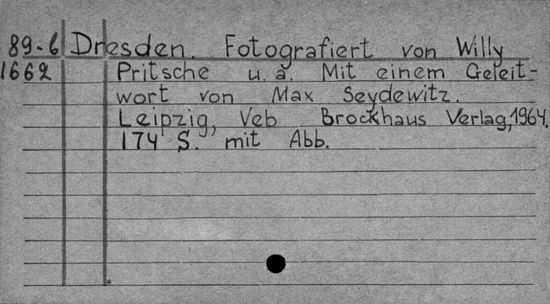 89-6 Dresden. Fotografiert von Willy
1662 Pritsche u. a. Mit einem Geleit-
wort von Max Seydewitz.
Leipzig, Veb Brockhaus Verlag, 1964.
174 S. mit Abb.